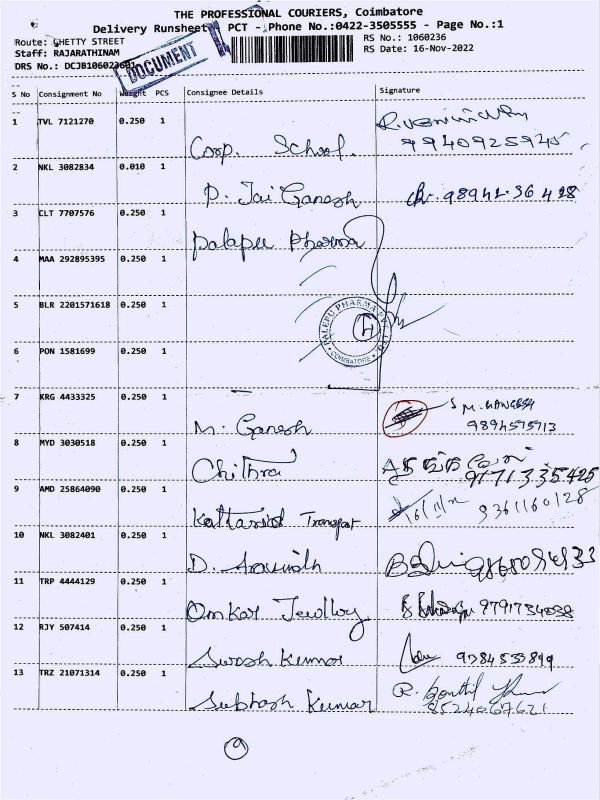 THE PROFESSIONAL COURIERS, Coimbatore
Delivery Runsheet PCT - Phone No.:0422-3505555 - Page No.:1
Route: GHETTY STREET RS No.: 1060236
Staff: RAJARATHINAM RS Date: 16-Nov-2022
DRS No.: DCJB106023601
DOCUMENT
S No Consignment No Weight PCS Consignee Details Signature
1 TVL 7121270 0.250 1 Corp. School. 9940925945
2 NKL 3082834 0.010 1 P. Jai Ganesh
3 CLT 7707576 0.250 1 Palapeu Pharma
4 MAA 292895395 0.250 1
5 BLR 2201571618 0.250 1
PALEPU PHARMA PVT LTD
COIMBATORE
6 PON 1581699 0.250 1
7 KRG 4433325 0.250 1 M. Ganesh
8 MYD 3030518 0.250 1 Chithra 9171335425
9 AMD 25864090 0.250 1 Transport 16/11/ 9361160128
10 NKL 3082401 0.250 1 D. Aravinth
11 TRP 4444129 0.250 1 Omkar Jewllry
12 RJY 507414 0.250 1 Suresh Kumar
13 TRZ 21071314 0.250 1 Subhash Kumar 8524067621
9